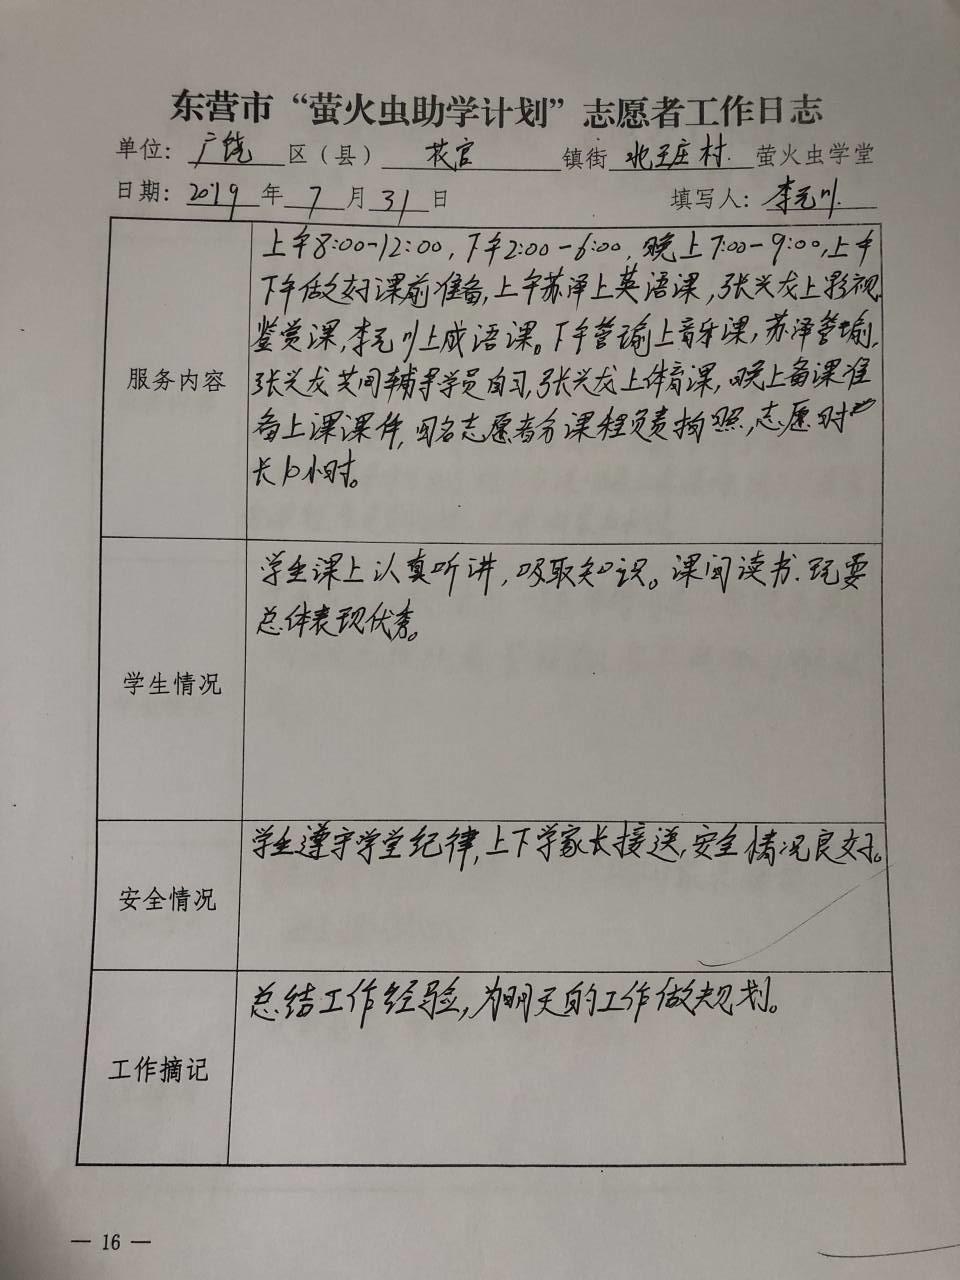 东营市“萤火虫助学计划”志愿者工作日志
单位：广饶区（县）花官镇街北王庄村萤火虫学堂
日期：2019年7月31日 填写人：李元川
服务内容
上午8:00-12:00，下午2:00-6:00，晚上7:00-9:00，上午
下午做好课前准备，上午苏泽上英语课，张兴龙上影视
鉴赏课，李元川上成语课。下午管瑜上音乐课，苏泽管瑜，
张兴龙共同辅导学员自习，张兴龙上体育课，晚上备课准
备上课课件，四名志愿者分课程负责拍照，志愿时
长10小时。
学生情况
学生课上认真听讲，吸取知识。课间读书、玩耍
总体表现优秀。
安全情况
学生遵守学堂纪律，上下学家长接送，安全情况良好。
工作摘记
总结工作经验，为明天的工作做规划。
— 16 —